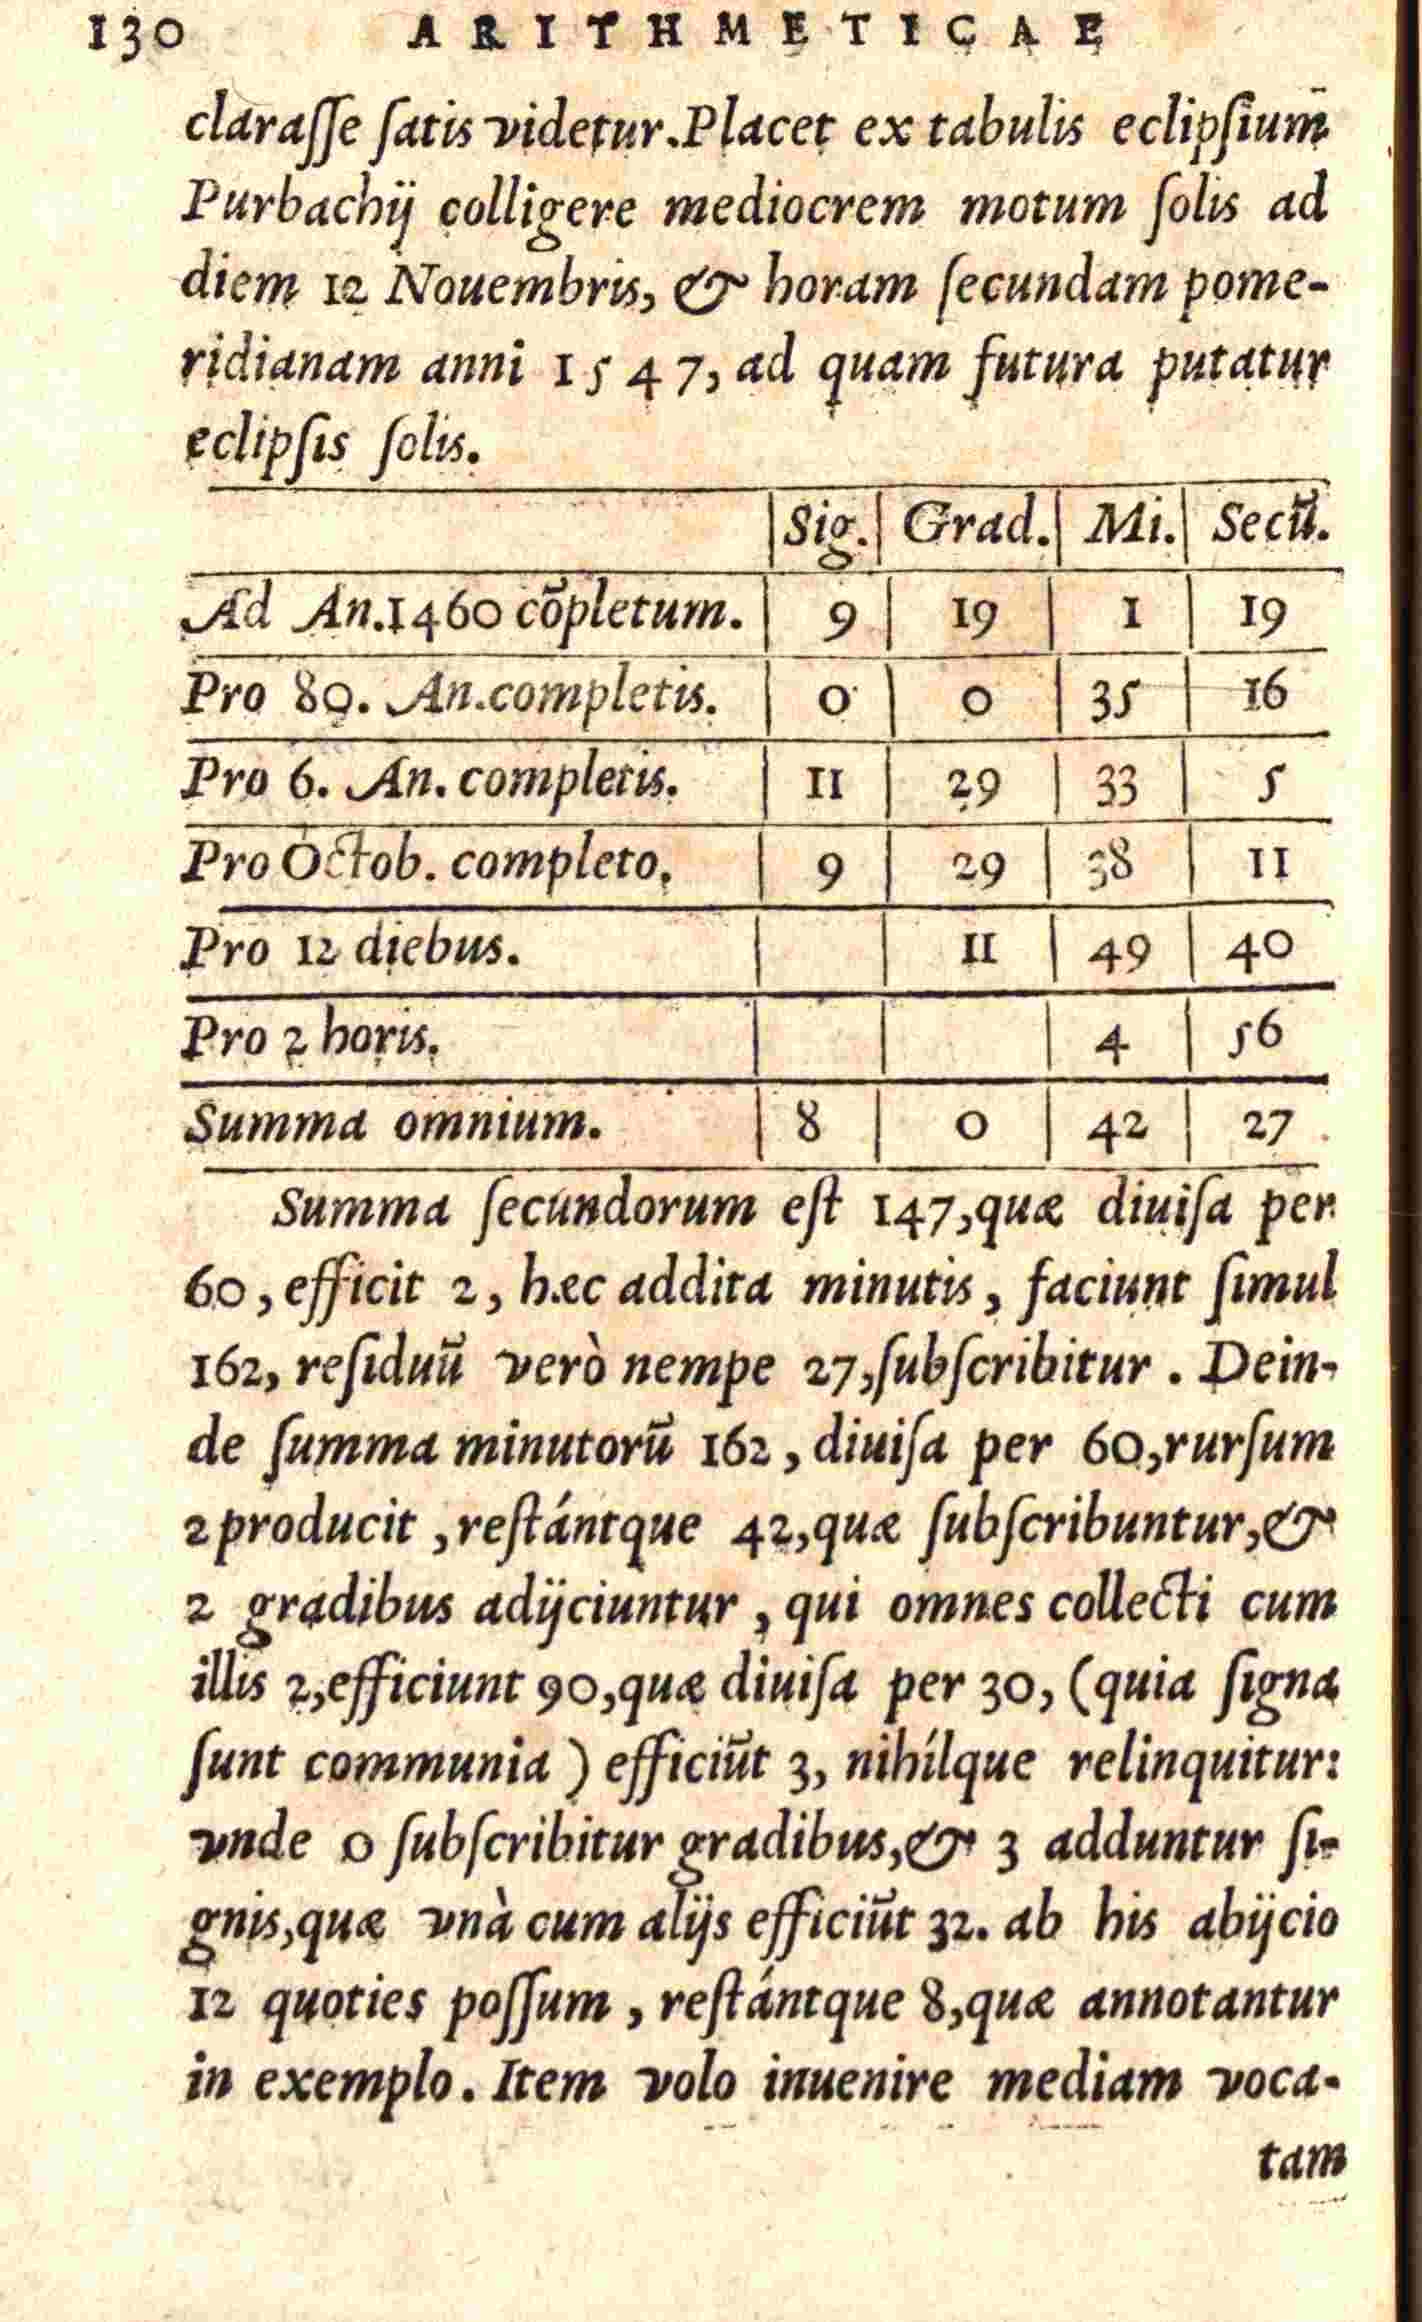 130 ARITHMETICAE
claraſſe ſatis videtur. Placet ex tabulis eclipſium
Purbachij colligere mediocrem motum ſolis ad
diem 12 Nouembris, & horam ſecundam pome-
ridianam anni 1547, ad quam futura putatur
eclipſis ſolis.
| Sig. | Grad. | Mi. | Secũ.
Ad An. 1460 cõpletum. | 9 | 19 | 1 | 19
Pro 80. An. completis. | 0 | 0 | 35 | 16
Pro 6. An. completis. | 11 | 29 | 33 | 5
Pro Octob. completo. | 9 | 29 | 38 | 11
Pro 12 diebus. | | 11 | 49 | 40
Pro 2 horis. | | | 4 | 56
Summa omnium. | 8 | 0 | 42 | 27
Summa ſecundorum eſt 147, quæ diuiſa per
60, efficit 2, hæc addita minutis, faciunt ſimul
162, reſiduũ verò nempe 27, ſubſcribitur. Dein-
de ſumma minutorũ 162, diuiſa per 60, rurſum
2 producit, reſtántque 42, quæ ſubſcribuntur, &
2 gradibus adijciuntur, qui omnes collecti cum
illis 2, efficiunt 90, quæ diuiſa per 30, (quia ſigna
ſunt communia) efficiũt 3, nihílque relinquitur:
vnde 0 ſubſcribitur gradibus, & 3 adduntur ſi-
gnis, quæ vnà cum alijs efficiũt 32. ab his abijcio
12 quoties poſſum, reſtántque 8, quæ annotantur
in exemplo. Item volo inuenire mediam voca-
tam